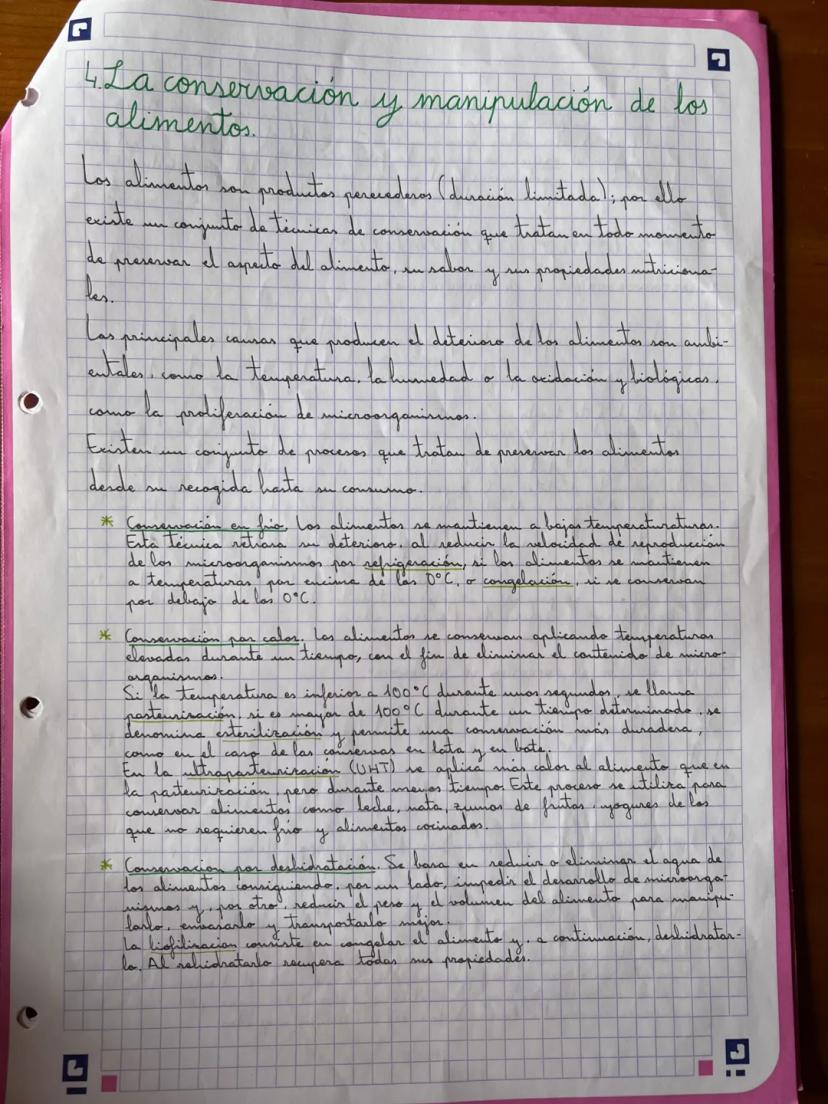 4. La conservación y manipulación de los
alimentos.
Los alimentos son productos perecederos (duración limitada); por ello
existe un conjunto de técnicas de conservación que tratan en todo momento
de preservar el aspecto del alimento, su sabor y sus propiedades nutriciona-
les.
Las principales causas que producen el deterioro de los alimentos son ambi-
entales, como la temperatura, la humedad o la oxidación y biológicas,
como la proliferación de microorganismos.
Existen un conjunto de procesos que tratan de preservar los alimentos
desde su recogida hasta su consumo.
* Conservación en frío. Los alimentos se mantienen a bajas temperaturaturas.
Esta técnica retrasa su deterioro, al reducir la velocidad de reproducción
de los microorganismos por refrigeración, si los alimentos se mantienen
a temperaturas por encima de los 0°C, o congelación, si se conservan
por debajo de los 0°C.
* Conservación por calor. Los alimentos se conservan aplicando temperaturas
elevadas durante un tiempo, con el fin de eliminar el contenido de micro-
organismos.
Si la temperatura es inferior a 100°C durante unos segundos, se llama
pasteurización, si es mayor de 100°C durante un tiempo determinado, se
denomina esterilización y permite una conservación más duradera,
como en el caso de las conservas en lata y en bote.
En la ultrapasteurización (UHT) se aplica más calor al alimento que en
la pasteurización, pero durante menos tiempo. Este proceso se utiliza para
conservar alimentos como leche, nata, zumos de frutas, yogures de los
que no requieren frío y alimentos cocinados.
* Conservación por deshidratación. Se basa en reducir o eliminar el agua de
los alimentos consiguiendo, por un lado, impedir el desarrollo de microorga-
nismos y, por otro, reducir el peso y el volumen del alimento para manipu-
larlo, envasarlo y transportarlo mejor.
La liofilización consiste en congelar el alimento y, a continuación, deshidratar-
lo. Al rehidratarlo recupera todas sus propiedades.